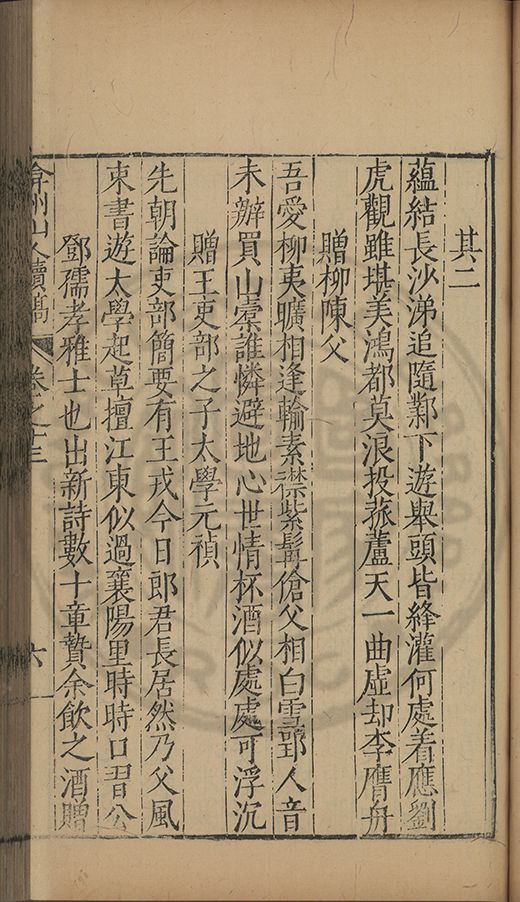 其二
蘊結長沙涕追隨鄴下遊舉頭皆絳灌何處着應劉
虎觀雖堪美鴻都莫浪投菰蘆天一曲虛却李膺舟
贈柳陳父
吾愛柳夷曠相逢輸素襟紫髯傖父相白雪郢人音
未辦買山橐誰憐避地心世情杯酒似處處可浮沉
贈王吏部之子太學元禎
先朝論吏部簡要有王戎今日郎君長居然乃父風
束書遊太學起草擅江東似過襄陽里時時口習公
鄧孺孝雅士也出新詩數十章贄余飲之酒贈
弇州山人續稿 卷之十三 六